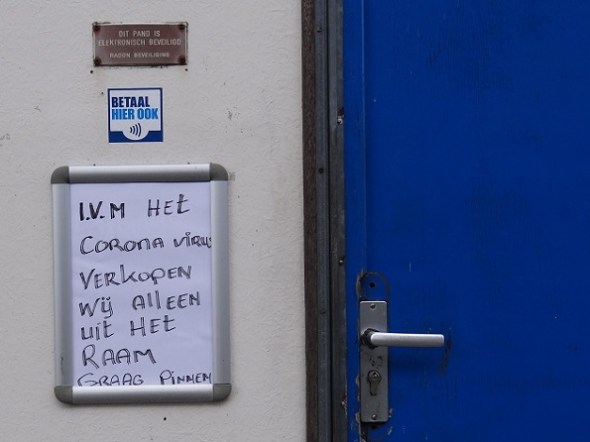 DIT PAND IS
ELEKTRONISCH BEVEILIGD
RADON BEVEILIGING
BETAAL
HIER OOK
I.V.M HET
CORONA VIRUS
VERKOPEN
WIJ ALLEEN
UIT HET
RAAM
GRAAG PINNEN